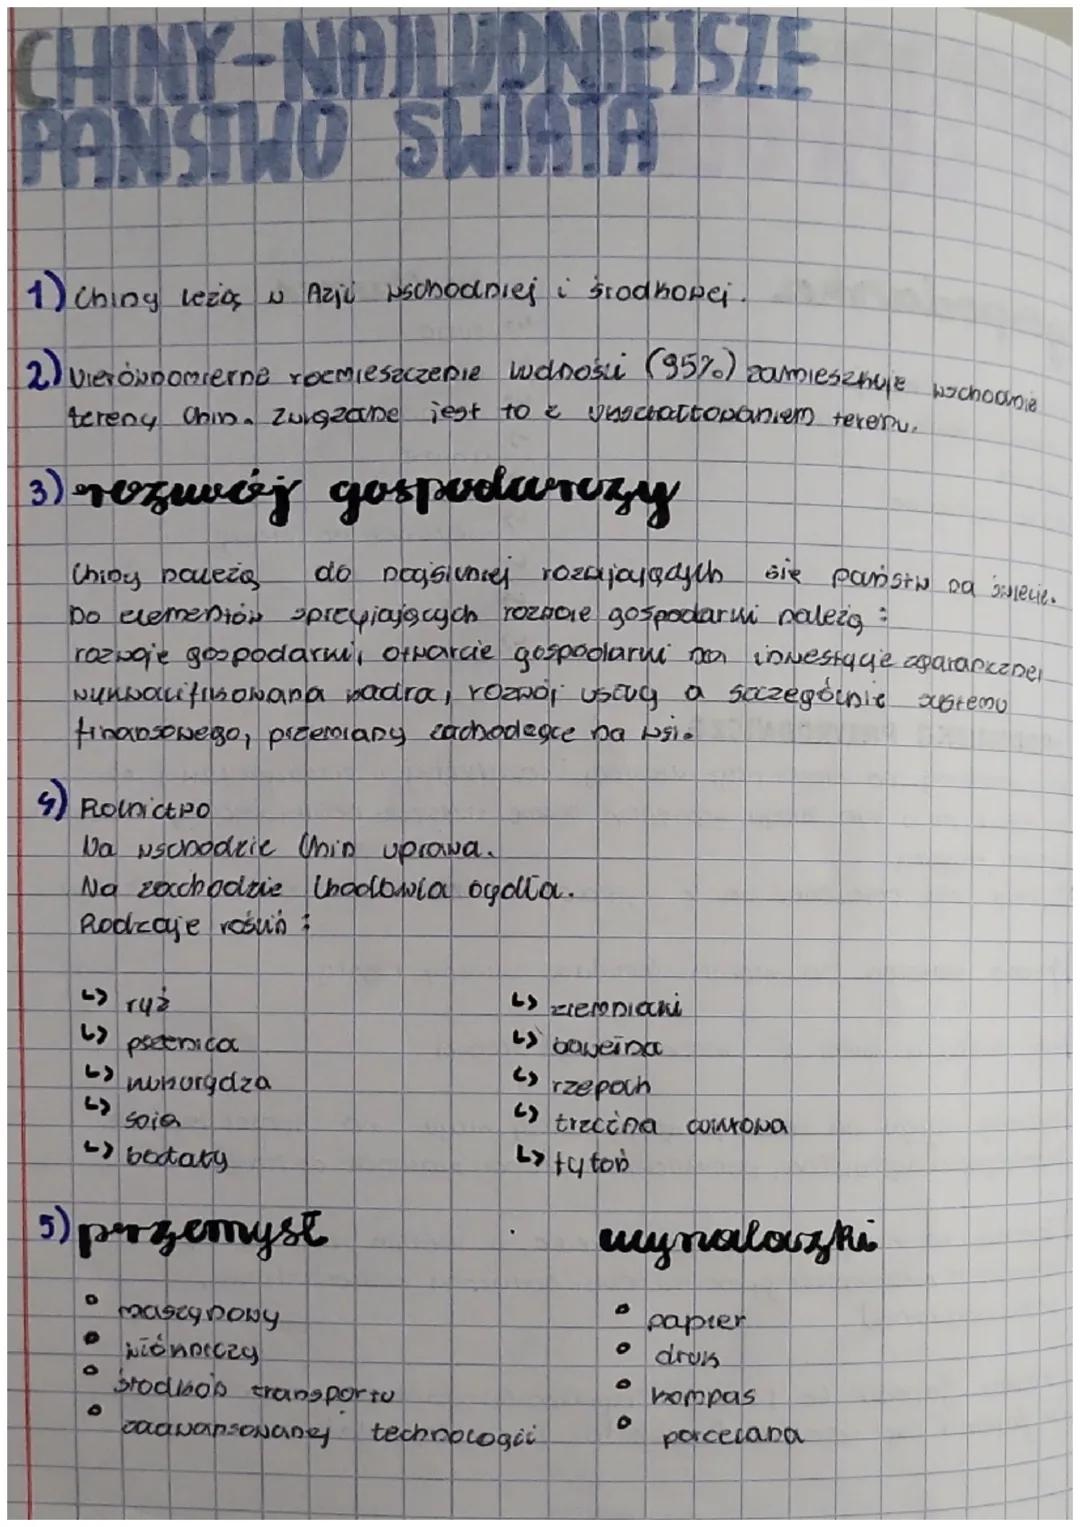 CHINY-NAJLUDNIEJSZE
PAŃSTWO ŚWIATA
1) Chiny leżą w Azji wschodniej i środkowej.
2) Nierównomierne rozmieszczenie ludności (95%) zamieszkuje wschodnie
tereny Chin. Związane jest to z ukształtowaniem terenu.
3) rozwój gospodarczy
Chiny należą do najsilniej rozwijających się państw na świecie.
Do elementów sprzyjających rozwoje gospodarki należą :
rozwoje gospodarki, otwarcie gospodarki na inwestycje zagranicznej
wykwalifikowana kadra, rozwój usług a szczególnie systemu
finansowego, przemiany zachodzące na wsi.
4) Rolnictwo
Na wschodzie Chin uprawa.
Na zachodzie Chodowla bydła.
Rodzaje roślin :
↳ ryż
↳ pszenica
↳ kukurydza
↳ soja
↳ bataty
↳ ziemniaki
↳ bawełna
↳ rzepach
↳ trzcina cukrowa
↳ tytoń
5) przemysł
• maszynowy
• włókniczy
• środków transportu
• zaawansowanej technologii
wynalazki
• papier
• druk
• kompas
• porcelana